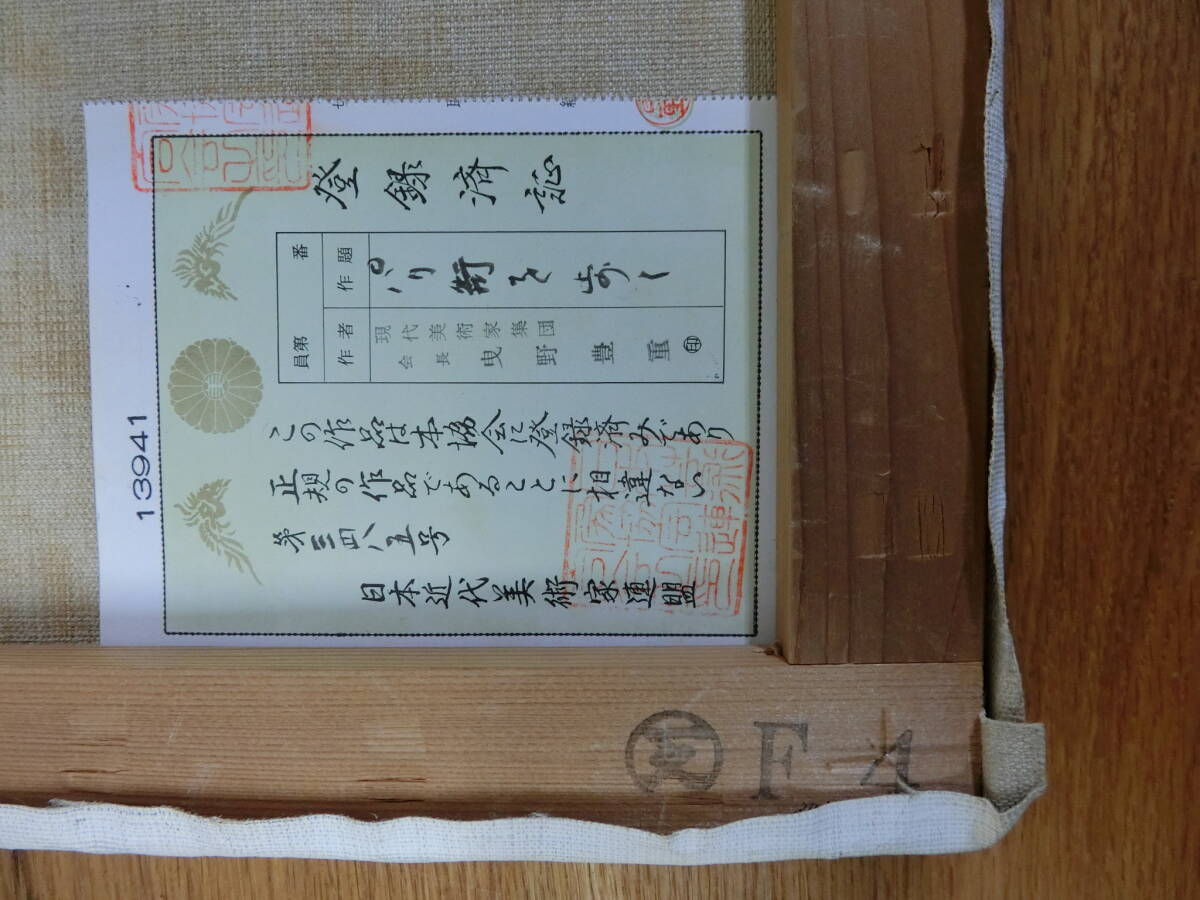 13941
登録済証
番
員第
作題
パリ街を歩く
作者
現代美術家集団
会長
曳野豊重
印
この作品は本協会に登録済みであり
正規の作品であることに相違ない
第三四八五号
日本近代美術家連盟
F 4